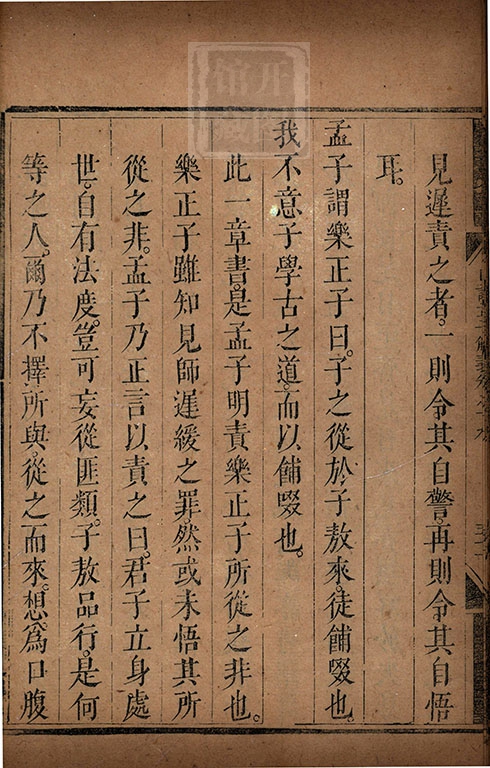 見遲責之者。一則令其自警。再則令其自悟
耳。
孟子謂樂正子曰。子之從於子敖來。徒餔啜也。
我不意子學古之道。而以餔啜也。
此一章書。是孟子明責樂正子所從之非也。
樂正子雖知見師遲緩之罪然或未悟其所
從之非。孟子乃正言以責之曰。君子立身處
世。自有法度。豈可妄從匪類。子敖品行。是何
等之人。爾乃不擇所與。從之而來。想爲口腹